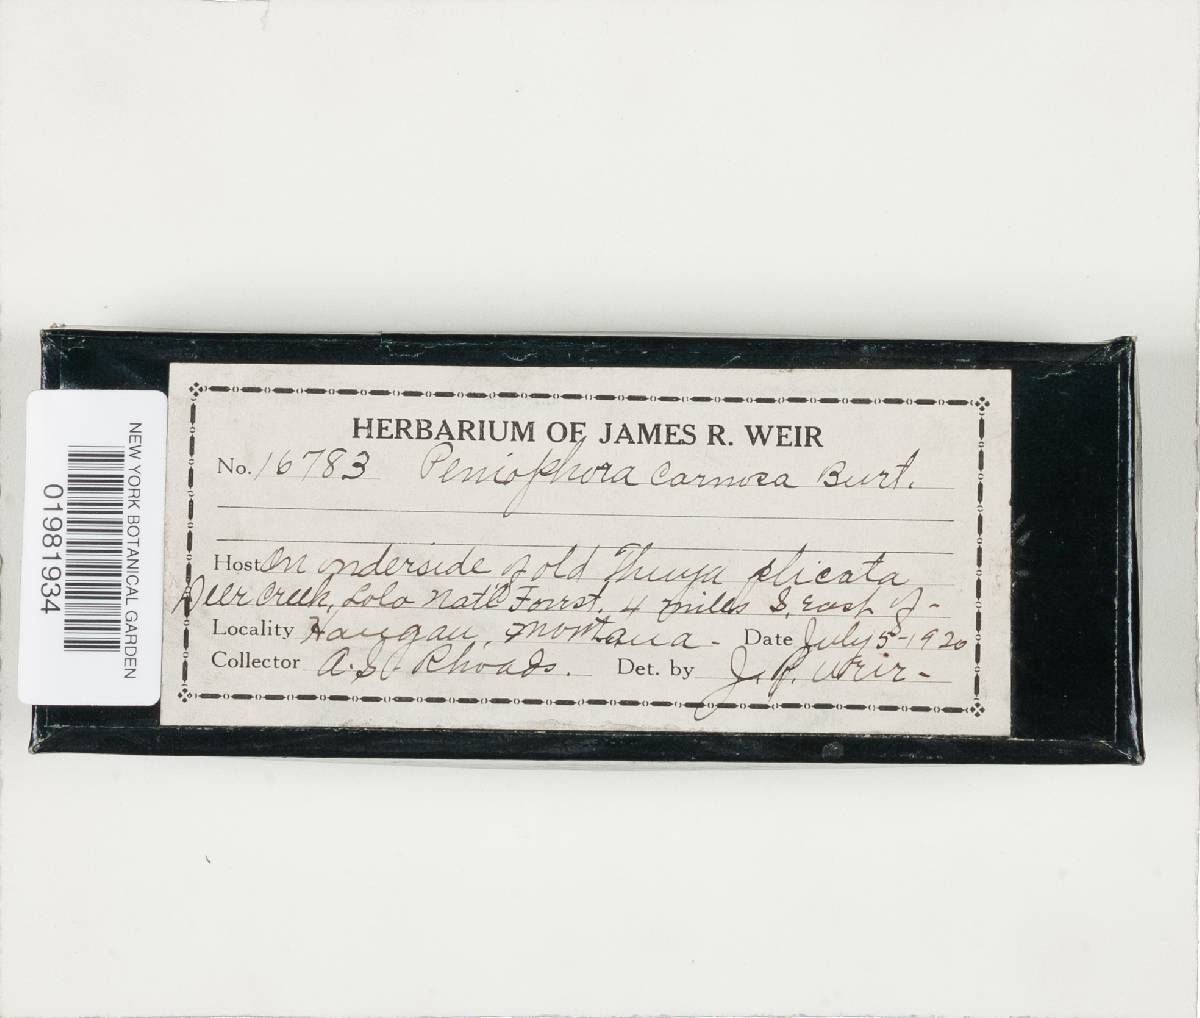 HERBARIUM OF JAMES R. WEIR
No. 16783 Peniophora carnosa Burt.
Host On underside of old Thuya plicata
Deer Creek, Lolo Nat'l Forest, 4 miles S. East of -
Locality Haugan, Montana - Date July 5-1920
Collector A. S. Rhoads. Det. by J. R. Weir -
NEW YORK BOTANICAL GARDEN
01981934